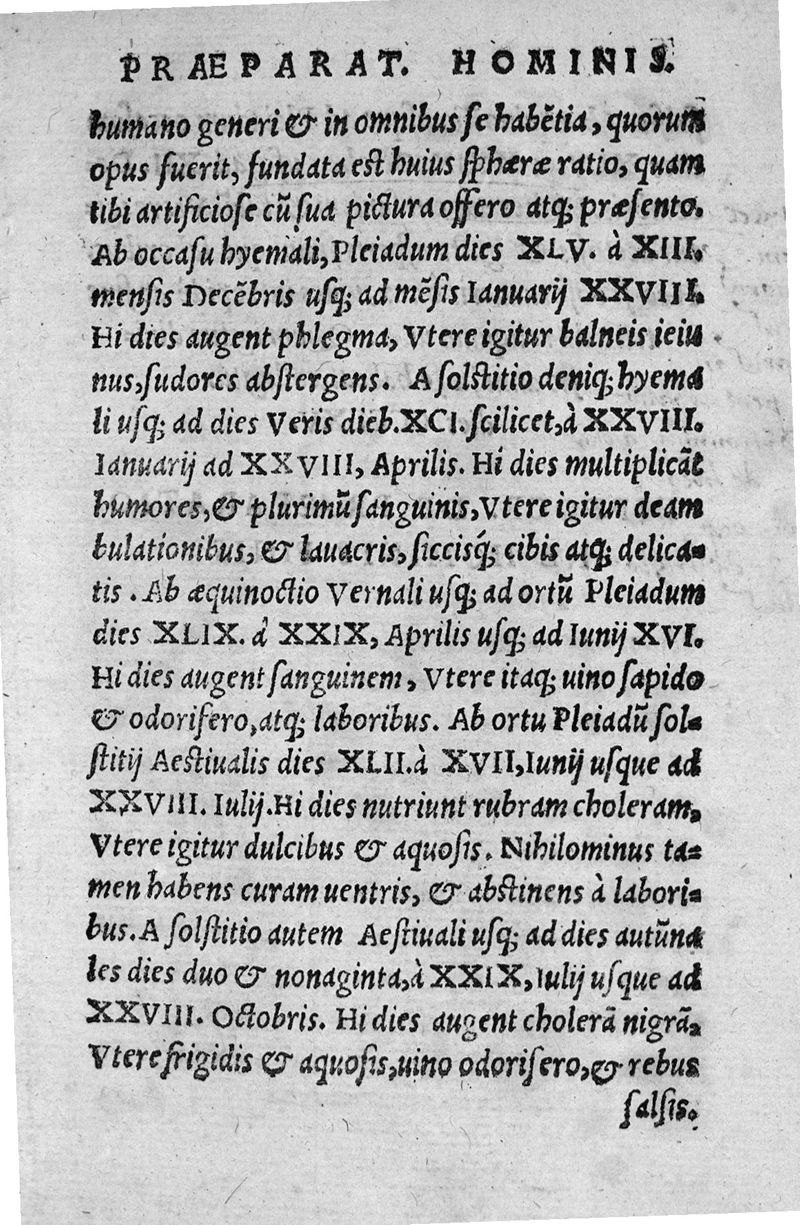 PRÆPARAT. HOMINIS.
humano generi & in omnibus se habẽtia, quorum
opus fuerit, fundata est huius sphæræ ratio, quam
tibi artificiose cũ sua pictura offero atq; præsento.
Ab occasu hyemali, Pleiadum dies XLV. à XIII.
mensis Decẽbris usq; ad mẽsis Ianuarij XXVIII.
Hi dies augent phlegma, Vtere igitur balneis ieiu
nus, sudores abstergens. A solstitio deniq; hyema
li usq; ad dies Veris dieb. XCI. scilicet, à XXVIII.
Ianuarij ad XXVIII, Aprilis. Hi dies multiplicãt
humores, & plurimũ sanguinis, Vtere igitur deam
bulationibus, & lauacris, siccisq́; cibis atq; delica-
tis. Ab æquinoctio Vernali usq; ad ortũ Pleiadum
dies XLIX. â XXIX, Aprilis usq; ad Iunij XVI.
Hi dies augent sanguinem, Vtere itaq; uino sapido
& odorifero, atq; laboribus. Ab ortu Pleiadũ sol-
stitij Aestiualis dies XLII. à XVII, Iunij usque ad
XXVIII. Iulij. Hi dies nutriunt rubram choleram,
Vtere igitur dulcibus & aquosis. Nihilominus ta-
men habens curam uentris, & abstinens à labori-
bus. A solstitio autem Aestiuali usq; ad dies autũna
les dies duo & nonaginta, à XXIX, Iulij usque ad
XXVIII. Octobris. Hi dies augent cholerã nigrã,
Vtere frigidis & aquosis, uino odorifero, & rebus
salsis.